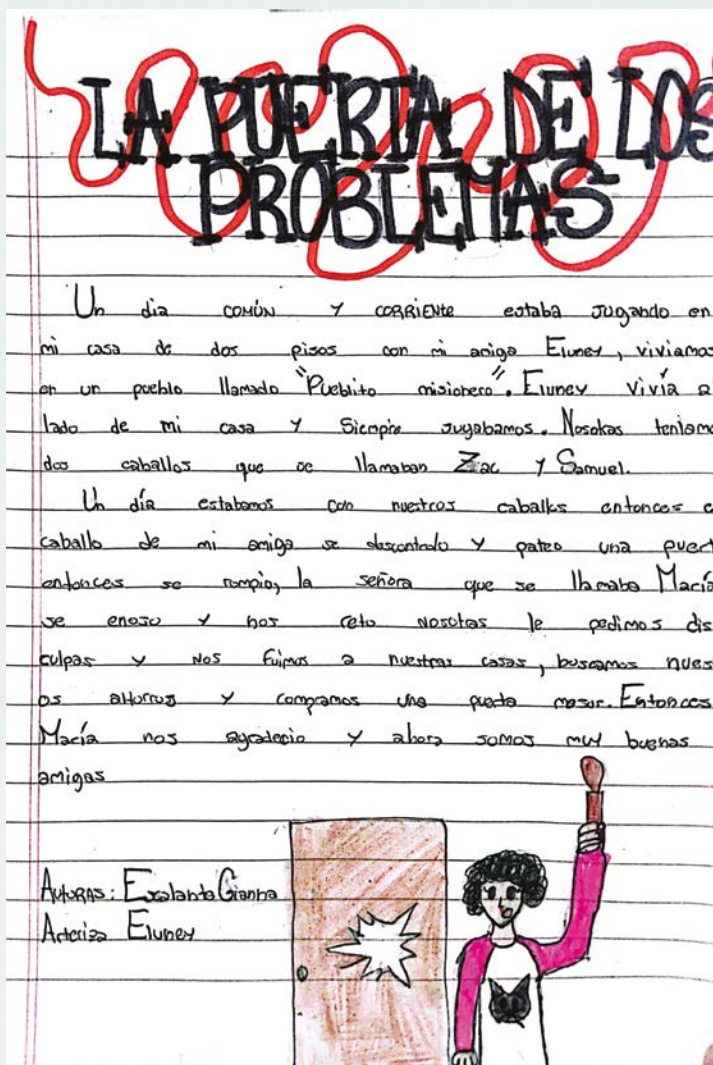 LA PUERTA DE LOS
PROBLEMAS
Un dia COMÚN Y CORRIENTE estaba Jugando en
mi casa de dos pisos con mi amiga Eluney, viviamos
en un pueblo llamado "Pueblito misionero". Eluney vivía al
lado de mi casa Y Siempre Jugabamos. Nosotras teniamo
dos caballos que se llamaban Zac Y Samuel.
Un día estabamos con nuestros caballos entonces e
caballo de mi amiga se descontrolo y pateo una puert
entonces se rompio, la señora que se llamaba María
se enojo y nos reto Nosotras le pedimos dis
culpas y NOS Fuimos a nuestras casas, buscamos nues
os aHorros y compramos una puerta mejor. Entonces
María nos agradecio Y ahora somos muy buenas
amigas
AUTORAS: Exalante Gianna
Arteriza Eluney